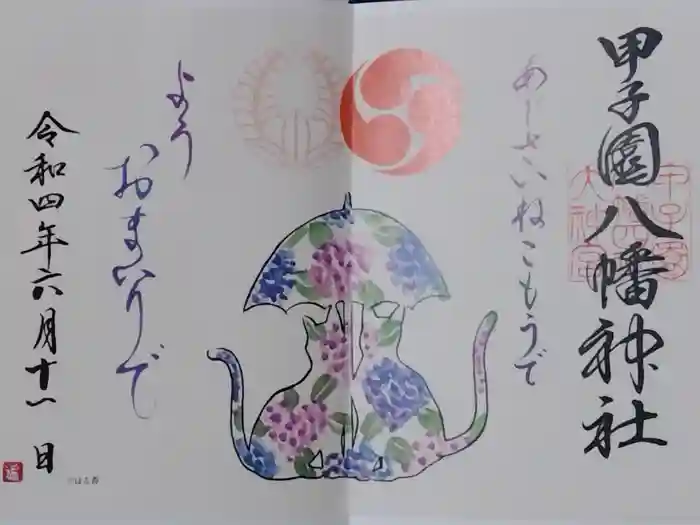 甲子園八幡神社
あじさいねこもうで
よう
おまいりで
令和四年六月十一日